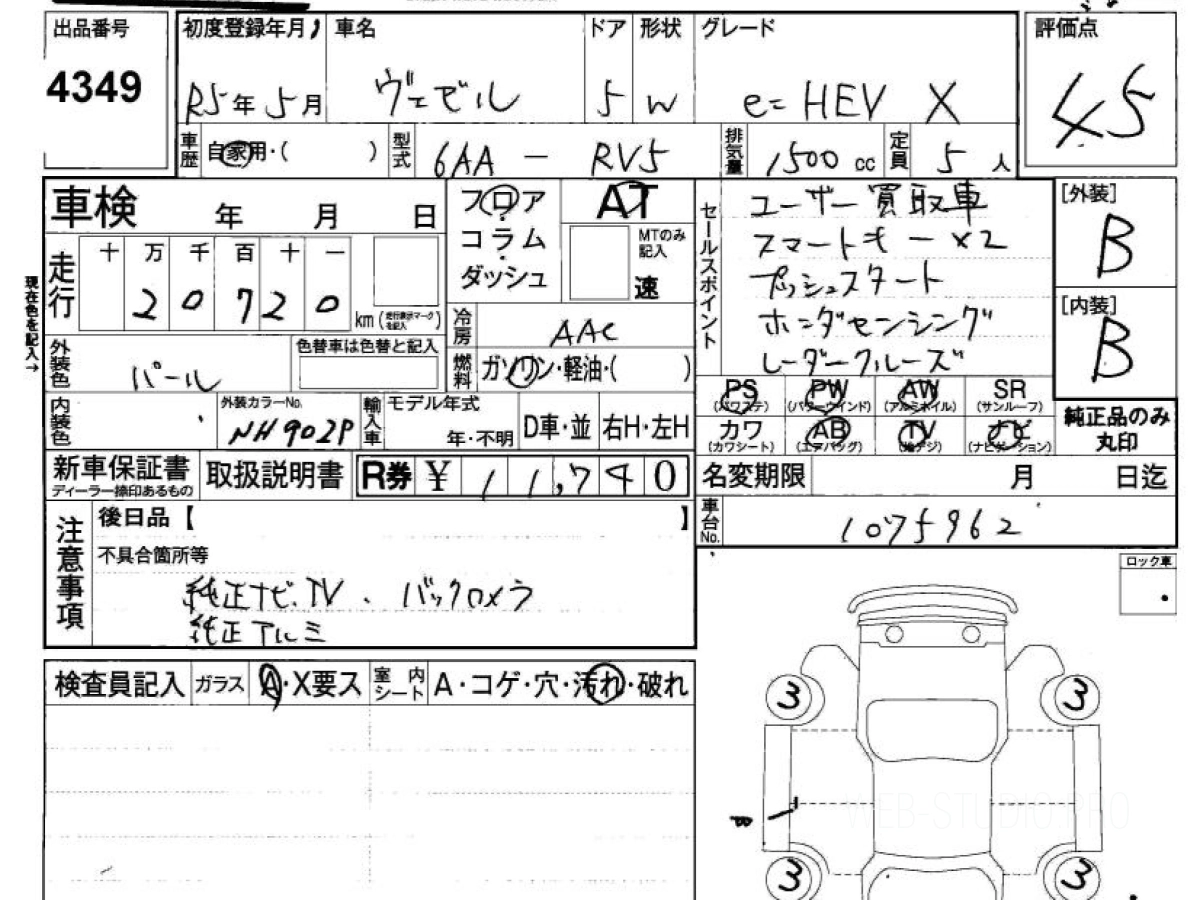 出品番号
4349
初度登録年月
R5年5月
車名
ヴェゼル
ドア
5
形状
W
グレード
e= HEV X
評価点
4.5
車歴
自家用・( )
型式
6AA - RV5
排気量
1500 cc
定員
5人
車検 年 月 日
フロア
コラム
ダッシュ
AT
MTのみ記入
速
セールスポイント
ユーザー買取車
スマートキー×2
プッシュスタート
ホンダセンシング
レーダークルーズ
[外装]
B
[内装]
B
現在色を記入→
走行
十 万 千 百 十 一
2 0 7 2 0
km (走行表示マークを記入)
冷房
AAC
燃料
ガソリン・軽油・( )
外装色
パール
色替車は色替と記入
内装色
外装カラーNo.
NH902P
輸入車
モデル年式
年・不明
D車・並
右H・左H
PS
(パワステ)
PW
(パワーウインド)
AW
(アルミホイル)
SR
(サンルーフ)
カワ
(カワシート)
AB
(エアバッグ)
TV
(地デジ)
ナビ
(ナビゲーション)
純正品のみ
丸印
新車保証書
ディーラー捺印あるもの
取扱説明書
R券 ¥ 11,740
名変期限 月 日迄
車台No.
1075962
注意事項
後日品【 】
不具合箇所等
純正ナビ、TV、バックカメラ
純正アルミ
ロック車
検査員記入
ガラス
A・X要ス
室内シート
A・コゲ・穴・汚れ・破れ
3
3
3
3
WEB-STUDIO.PRO